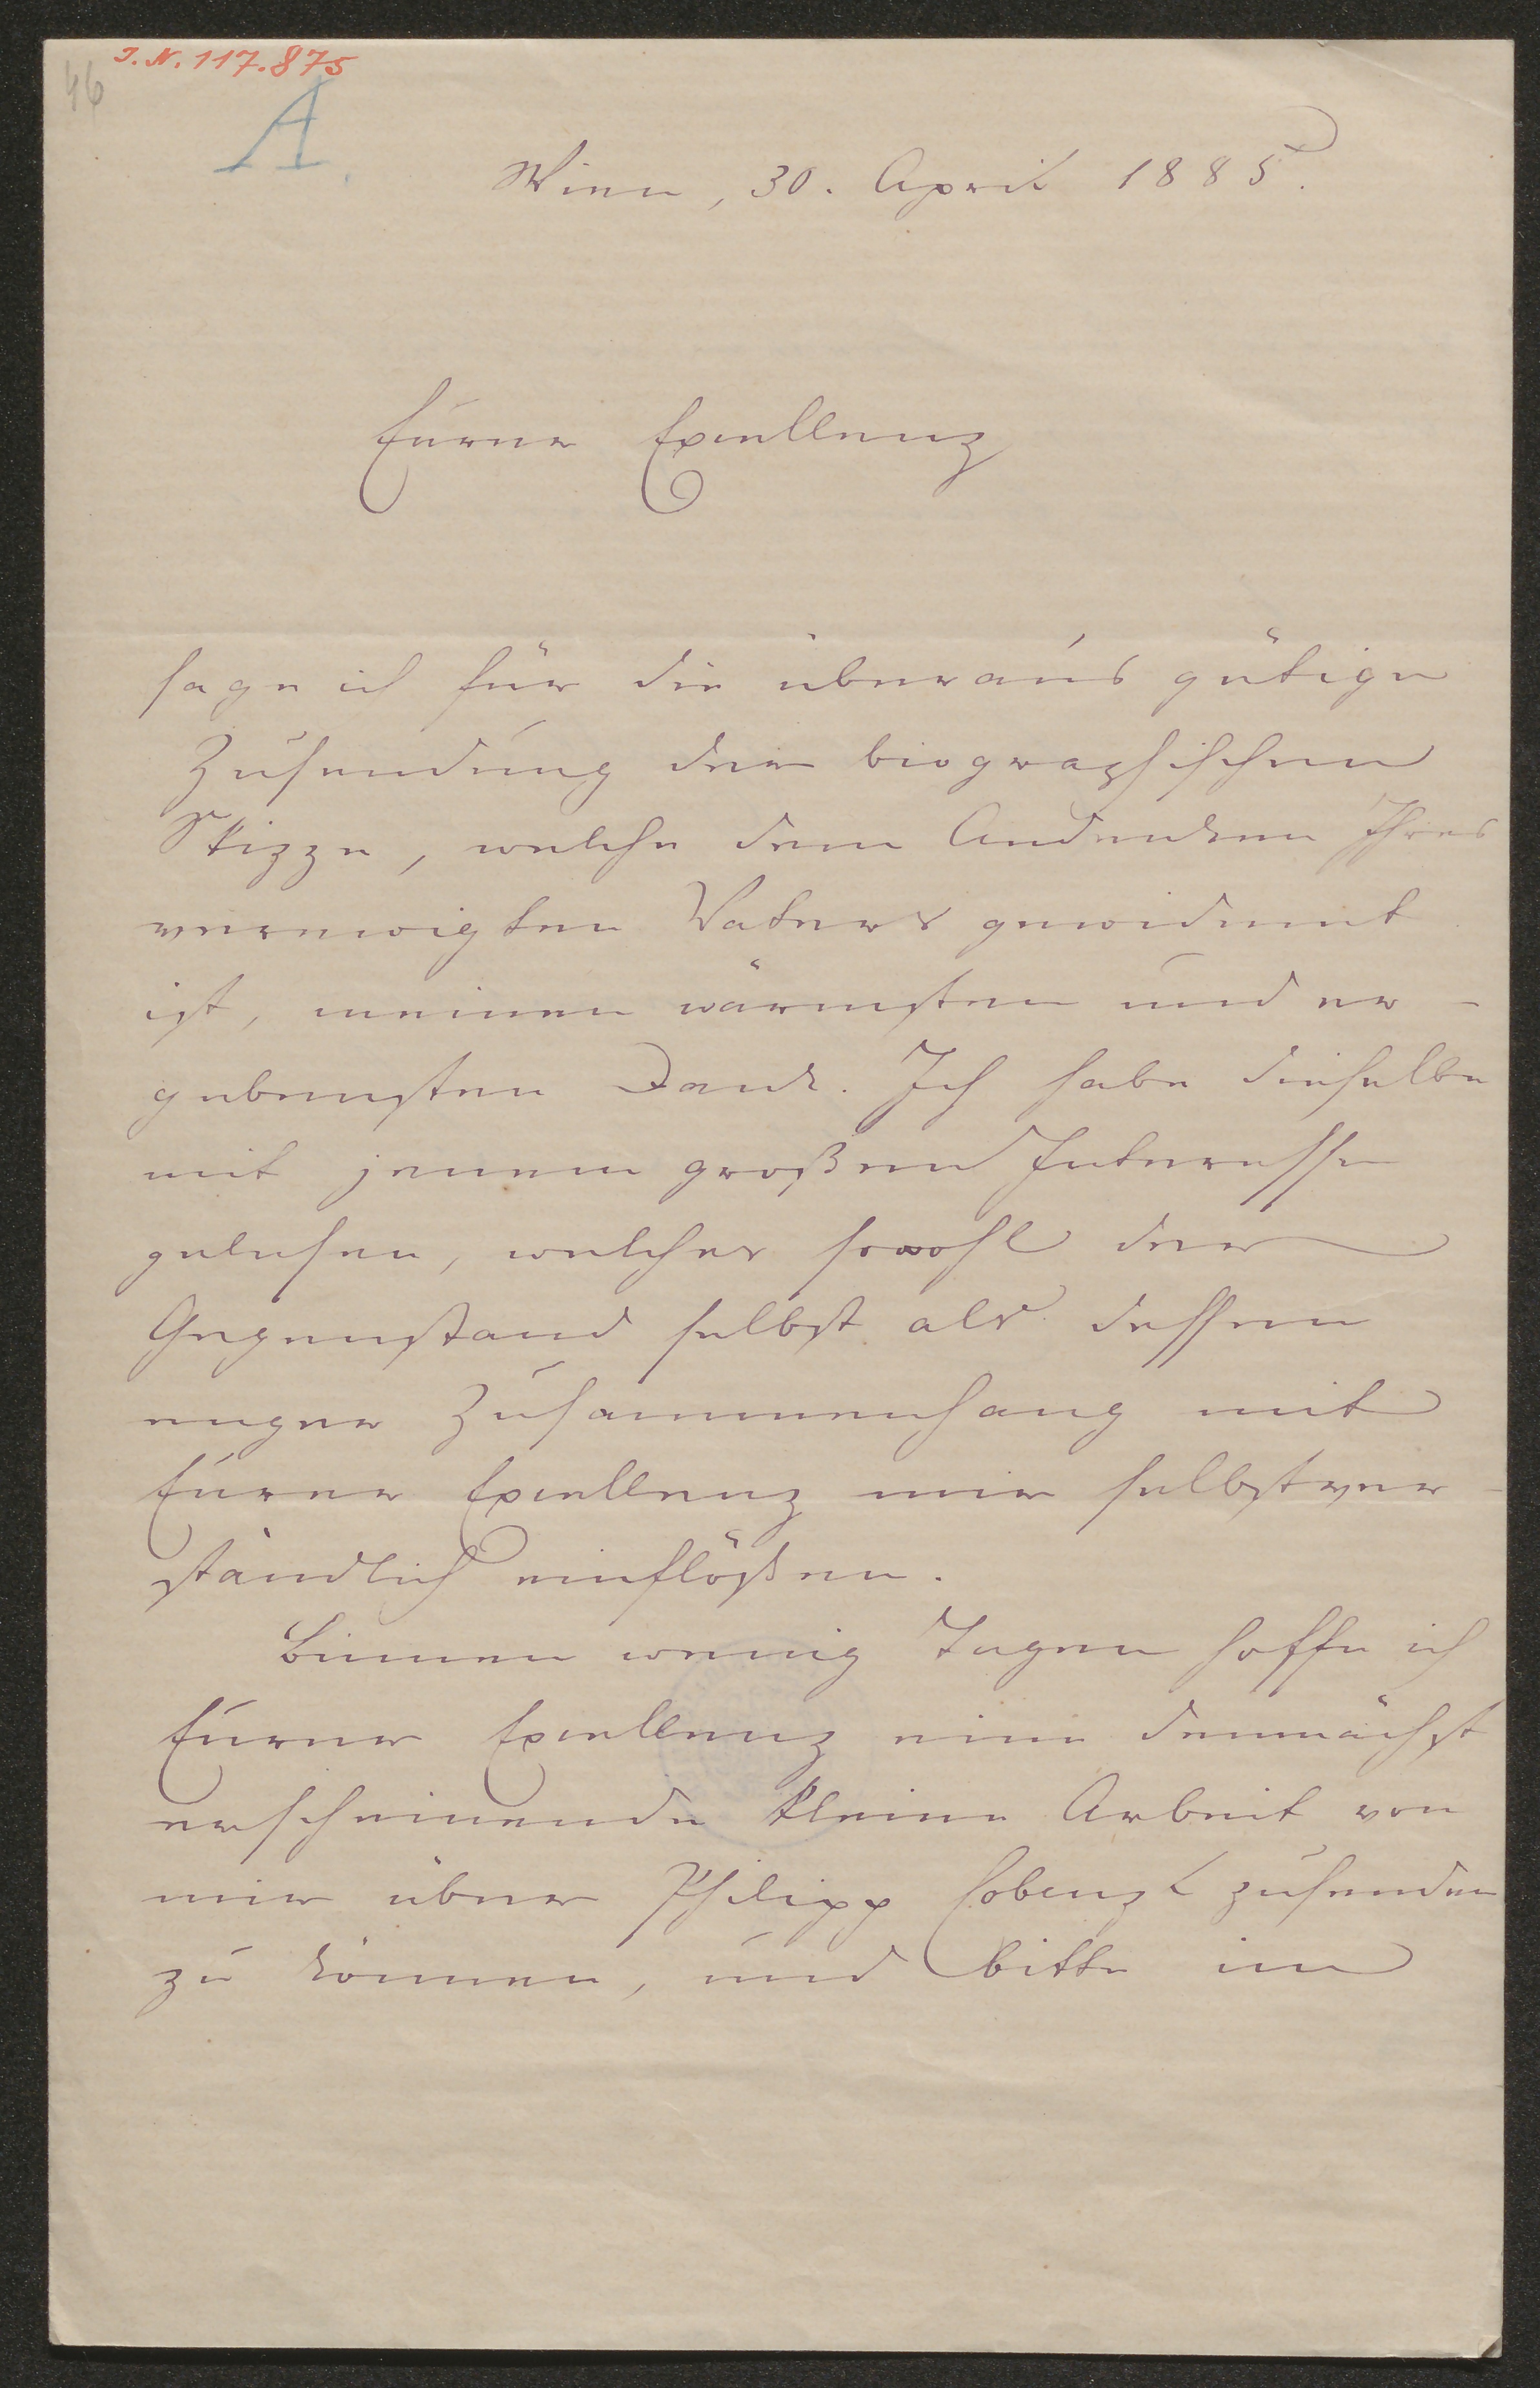 I.N. 117.875
46
A.
Wien, 30. April 1885.
Eurer Excellenz
sage ich für die überaus gütige
Zusendung der biographischen
Skizze, welche dem Andenken Ihres
verewigten Vaters gewidmet
ist, meinen wärmsten und er-
gebensten Dank. Ich habe dieselbe
mit jenem großen Interesse
gelesen, welches sowohl der
Gegenstand selbst als dessen
enger Zusammenhang mit
Eurer Excellenz mir selbstver-
ständlich einflößen.
Binnen wenig Tagen hoffe ich
Eurer Excellenz eine demnächst
erscheinende kleine Arbeit von
mir über Philipp Cobenzl zusenden
zu können, und bitte im